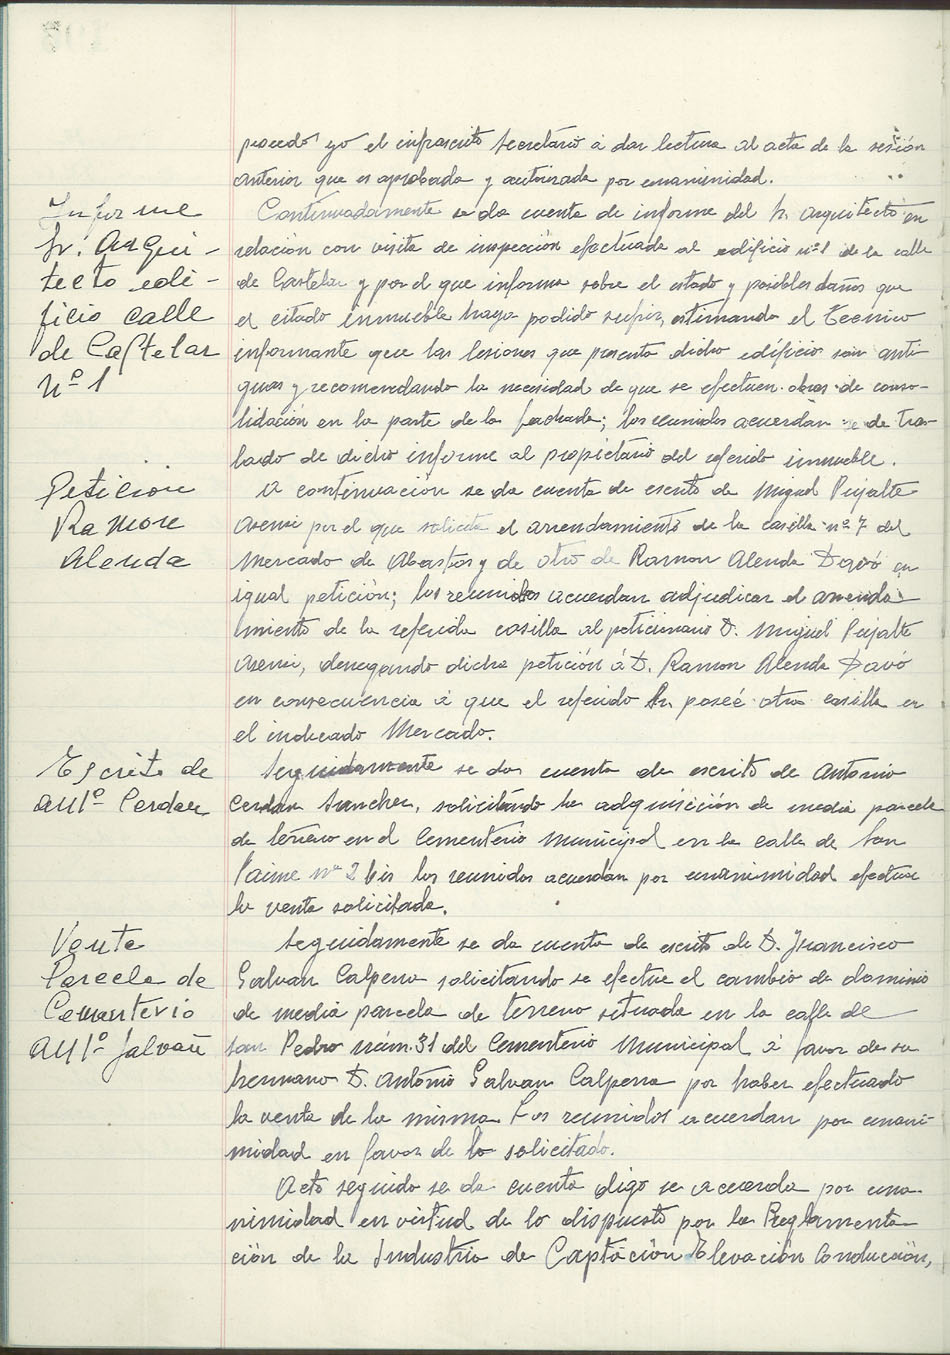 procedo yo el infrascrito Secretario a dar lectura al acta de la sesión
anterior que es aprobada y autorizada por unanimidad.
Informe
Sr. Arqui-
tecto edi-
ficio calle
de Castelar
nº 1
Continuadamente se da cuenta de informe del Sr. Arquitecto en
relación con visita de inspección efectuada al edificio nº 1 de la calle
de Castelar y por el que informa sobre el estado y posibles daños que
el citado inmueble haya podido sufrir, estimando el Tecnico
informante que las lesiones que presenta dicho edificio son anti-
guas y recomendando la necesidad de que se efectuen obras de conso-
lidación en la parte de la fachada; los reunidos acuerdan se de tras-
lado de dicho informe al propietario del referido inmueble.
Petición
Ramon
Alenda
A continuación se da cuenta de escrito de Miguel Pujalte
Asensi por el que solicita el arrendamiento de la casilla nº 7 del
Mercado de Abastos y de otro de Ramon Alenda Davó en
igual petición; los reunidos acuerdan adjudicar el arrenda-
miento de la referida casilla al peticionario D. Miguel Pujalte
Asensi, denegando dicha petición á D. Ramon Alenda Davó
en consecuencia á que el referido Sr. poseé otra casilla en
el indicado Mercado.
Escrito de
Antº Cerdan
Seguidamente se da cuenta de escrito de Antonio
Cerdan Sanchez, solicitando la adquisición de media parcela
de terreno en el Cementerio Municipal en la calle de San
Jaime nº 2 bis los reunidos acuerdan por unanimidad efectuar
la venta solicitada.
Venta
Parcela de
Cementerio
Antº Galvañ
Seguidamente se da cuenta de escrito de D. Francisco
Galvan Calpena solicitando se efectue el cambio de dominio
de media parcela de terreno situada en la calle de
San Pedro núm. 31 del Cementerio Municipal á favor de su
hermano D. Antonio Galvan Calpena por haber efectuado
la venta de la misma. Los reunidos acuerdan por unani-
midad en favor de lo solicitado.
Acto seguido se da cuenta digo se acuerda por una-
nimidad en virtud de lo dispuesto por la Reglamenta-
ción de la Industria de Captación Elevación Conducción,